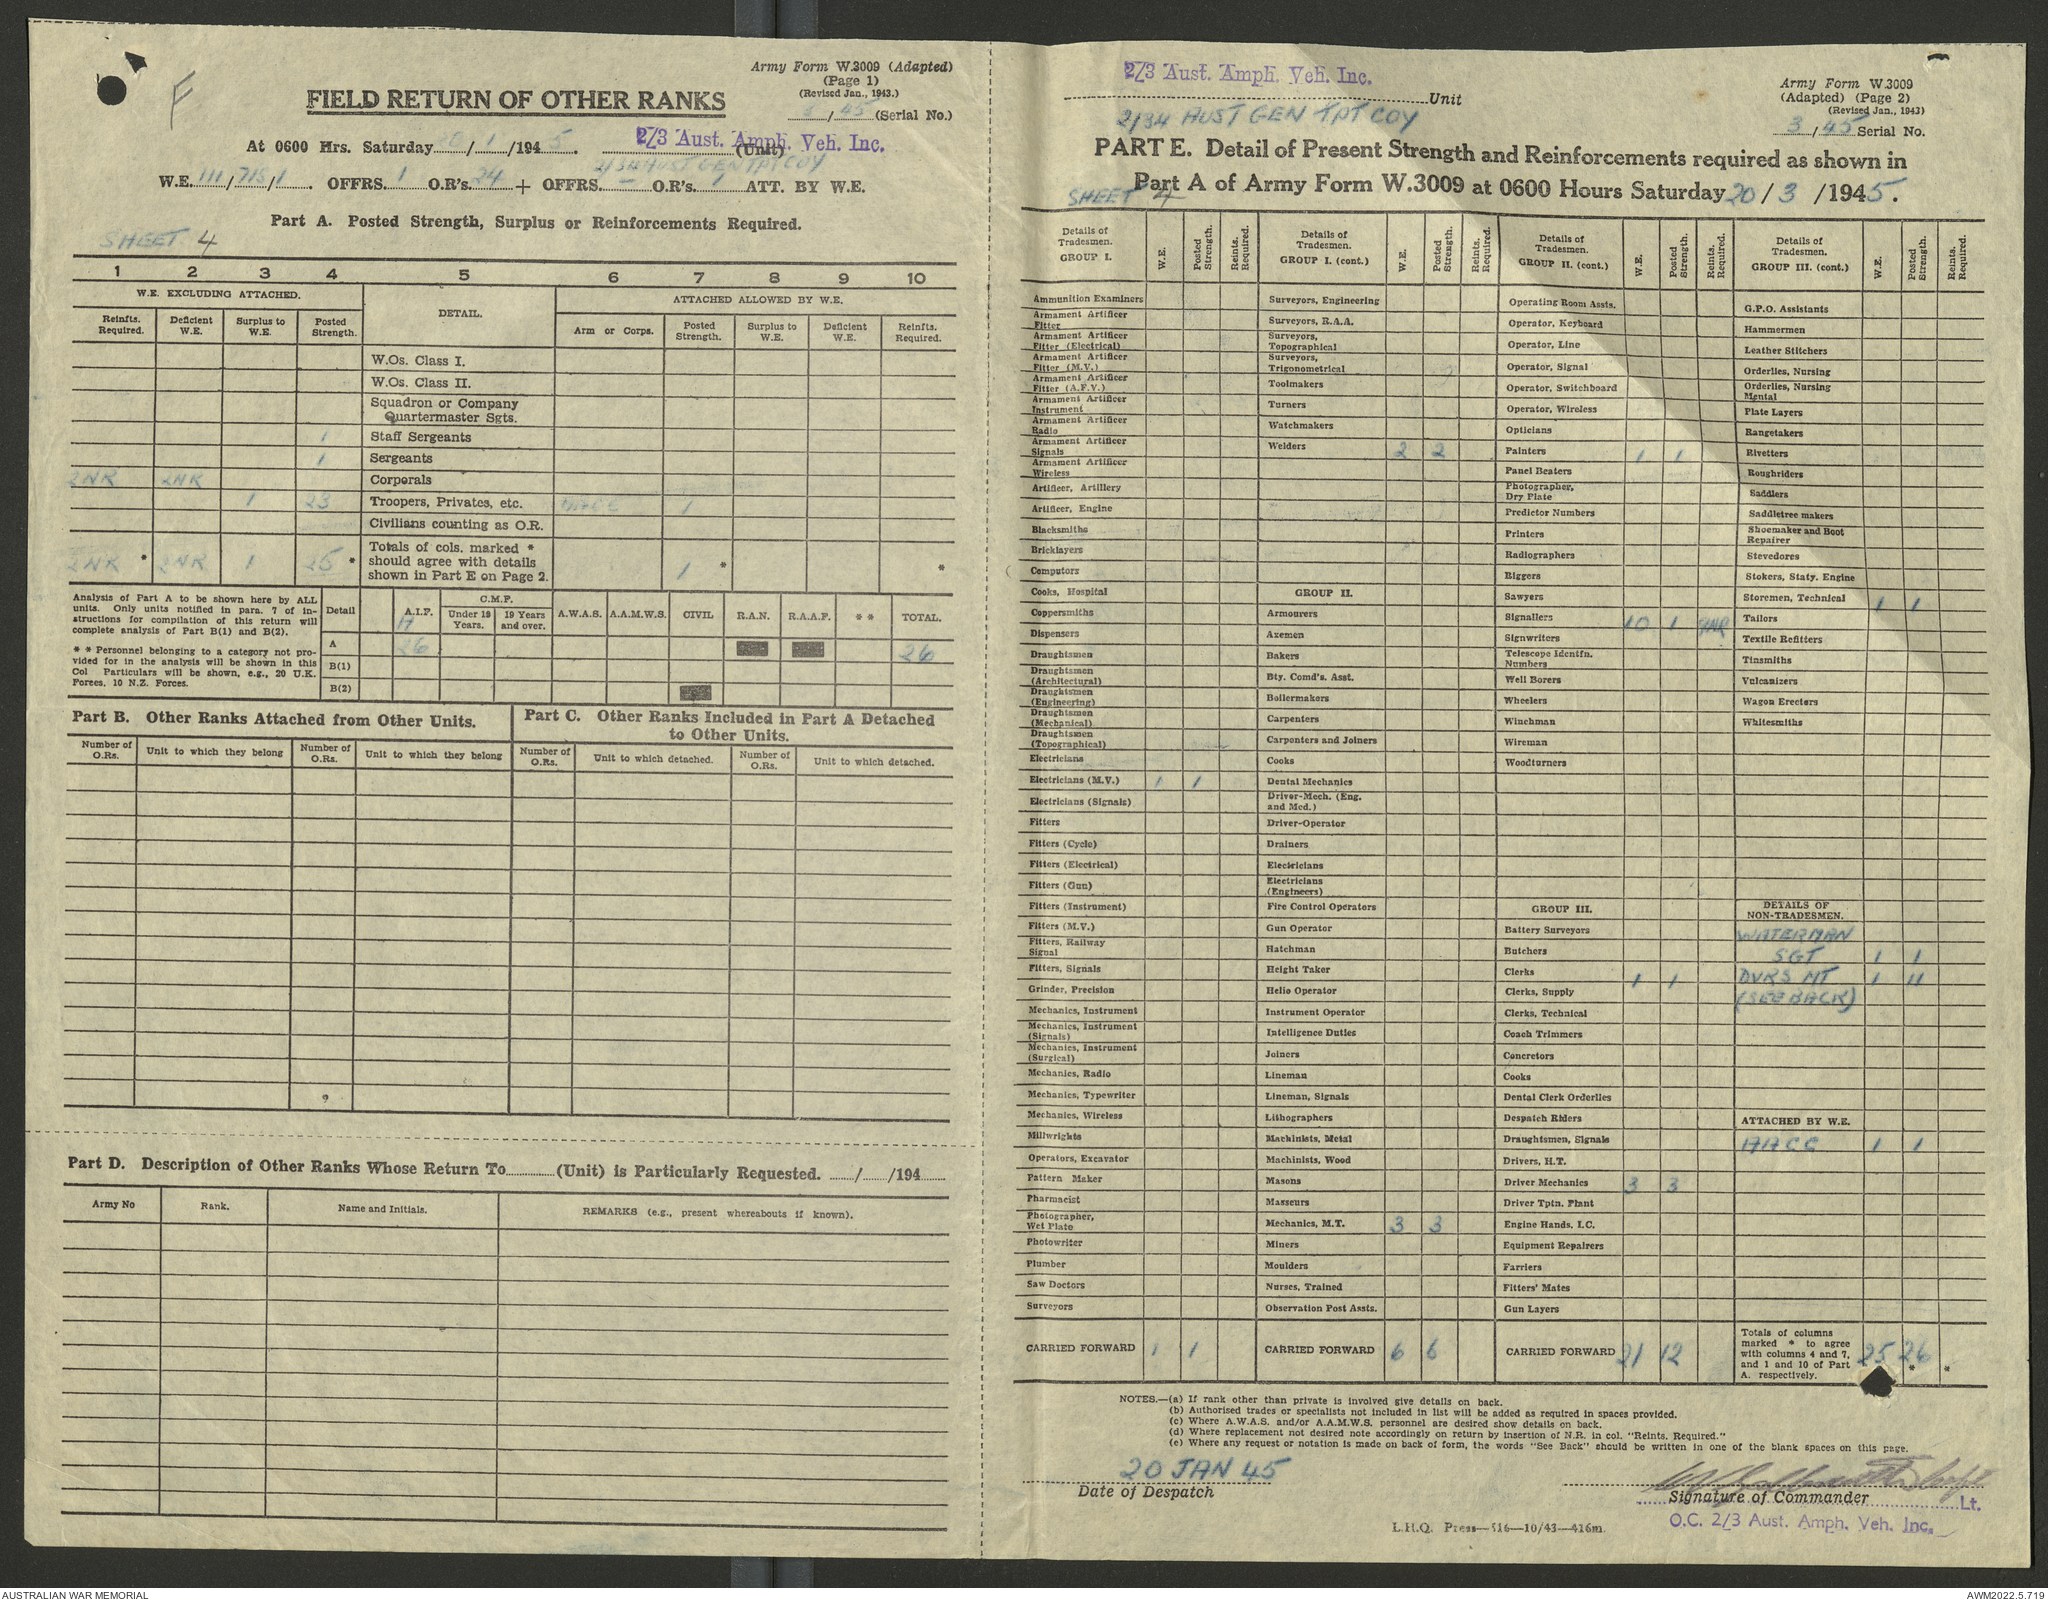 F
Army Form W.3009 (Adapted)
(Page 1)
(Revised Jan., 1943.)
3/45 (Serial No.)
FIELD RETURN OF OTHER RANKS
At 0600 Hrs. Saturday 20/1/1945. 2/3 Aust. Amph. Veh. Inc. (Unit)
2/34 AUST GEN TPT COY
W.E. 111/718/1. OFFRS. 1 O.R's. 24 + OFFRS. – O.R's. 1 ATT. BY W.E.
Part A. Posted Strength, Surplus or Reinforcements Required.
SHEET 4
1 2 3 4 5 6 7 8 9 10
W.E. EXCLUDING ATTACHED. DETAIL. ATTACHED ALLOWED BY W.E.
Reinfts. Required. Deficient W.E. Surplus to W.E. Posted Strength. Arm or Corps. Posted Strength. Surplus to W.E. Deficient W.E. Reinfts. Required.
W.Os. Class I.
W.Os. Class II.
Squadron or Company
Quartermaster Sgts.
1 Staff Sergeants
1 Sergeants
2NR 2NR Corporals
1 23 Troopers, Privates, etc. AACC 1
Civilians counting as O.R.
2NR * 2NR 1 25 * Totals of cols. marked * should agree with details shown in Part E on Page 2. 1 * *
Analysis of Part A to be shown here by ALL
units. Only units notified in para. 7 of in-
structions for compilation of this return will
complete analysis of Part B(1) and B(2).
* * Personnel belonging to a category not pro-
vided for in the analysis will be shown in this
Col Particulars will be shown, e.g., 20 U.K.
Forces, 10 N.Z. Forces.
Detail A.I.F. C.M.F. Under 19 Years. 19 Years and over. A.W.A.S. A.A.M.W.S. CIVIL R.A.N. R.A.A.F. * * TOTAL.
A 26 26
B(1)
B(2)
Part B. Other Ranks Attached from Other Units.
Number of O.Rs. Unit to which they belong Number of O.Rs. Unit to which they belong
Part C. Other Ranks Included in Part A Detached
to Other Units.
Number of O.Rs. Unit to which detached. Number of O.Rs. Unit to which detached.
Part D. Description of Other Ranks Whose Return To (Unit) is Particularly Requested. / /194
Army No Rank. Name and Initials. REMARKS (e.g., present whereabouts if known).
2/3 Aust. Amph. Veh. Inc.
Unit
2/34 AUST GEN TPT COY
Army Form W.3009
(Adapted) (Page 2)
(Revised Jan., 1943)
3/45 Serial No.
PART E. Detail of Present Strength and Reinforcements required as shown in
Part A of Army Form W.3009 at 0600 Hours Saturday 20/3/1945.
SHEET 4
Details of Tradesmen. GROUP I. W.E. Posted Strength. Reints. Required.
Ammunition Examiners
Armament Artificer Fitter
Armament Artificer Fitter (Electrical)
Armament Artificer Fitter (M.V.)
Armament Artificer Fitter (A.F.V.)
Armament Artificer Instrument
Armament Artificer Radio
Armament Artificer Signals
Armament Artificer Wireless
Artificer, Artillery
Artificer, Engine
Blacksmiths
Bricklayers
Computors
Cooks, Hospital
Coppersmiths
Dispensers
Draughtsmen
Draughtsmen (Architectural)
Draughtsmen (Engineering)
Draughtsmen (Mechanical)
Draughtsmen (Topographical)
Electricians
Electricians (M.V.) 1 1
Electricians (Signals)
Fitters
Fitters (Cycle)
Fitters (Electrical)
Fitters (Gun)
Fitters (Instrument)
Fitters (M.V.)
Fitters, Railway Signal
Fitters, Signals
Grinder, Precision
Mechanics, Instrument
Mechanics, Instrument (Signals)
Mechanics, Instrument (Surgical)
Mechanics, Radio
Mechanics, Typewriter
Mechanics, Wireless
Millwrights
Operators, Excavator
Pattern Maker
Pharmacist
Photographer, Wet Plate
Photowriter
Plumber
Saw Doctors
Surveyors
CARRIED FORWARD 1 1
Details of Tradesmen. GROUP I. (cont.) W.E. Posted Strength. Reints. Required.
Surveyors, Engineering
Surveyors, R.A.A.
Surveyors, Topographical
Surveyors, Trigonometrical
Toolmakers
Turners
Watchmakers
Welders 2 2
GROUP II.
Armourers
Axemen
Bakers
Bty. Comd's. Asst.
Boilermakers
Carpenters
Carpenters and Joiners
Cooks
Dental Mechanics
Driver-Mech. (Eng. and Med.)
Driver-Operator
Drainers
Electricians
Electricians (Engineers)
Fire Control Operators
Gun Operator
Hatchman
Height Taker
Helio Operator
Instrument Operator
Intelligence Duties
Joiners
Lineman
Lineman, Signals
Lithographers
Machinists, Metal
Machinists, Wood
Masons
Masseurs
Mechanics, M.T. 3 3
Miners
Moulders
Nurses, Trained
Observation Post Assts.
CARRIED FORWARD 6 6
Details of Tradesmen. GROUP II. (cont.) W.E. Posted Strength. Reints. Required.
Operating Room Assts.
Operator, Keyboard
Operator, Line
Operator, Signal
Operator, Switchboard
Operator, Wireless
Opticians
Painters 1 1
Panel Beaters
Photographer, Dry Plate
Predictor Numbers
Printers
Radiographers
Riggers
Sawyers
Signallers 10 1 9NR
Signwriters
Telescope Identfn. Numbers
Well Borers
Wheelers
Winchman
Wireman
Woodturners
GROUP III.
Battery Surveyors
Butchers
Clerks 1 1
Clerks, Supply
Clerks, Technical
Coach Trimmers
Concretors
Cooks
Dental Clerk Orderlies
Despatch Riders
Draughtsmen, Signals
Drivers, H.T.
Driver Mechanics 3 3
Driver Tptn. Plant
Engine Hands, I.C.
Equipment Repairers
Farriers
Fitters' Mates
Gun Layers
CARRIED FORWARD 21 12
Details of Tradesmen. GROUP III. (cont.) W.E. Posted Strength. Reints. Required.
G.P.O. Assistants
Hammermen
Leather Stitchers
Orderlies, Nursing
Orderlies, Nursing Mental
Plate Layers
Rangetakers
Rivetters
Roughriders
Saddlers
Saddletree makers
Shoemaker and Boot Repairer
Stevedores
Stokers, Staty. Engine
Storemen, Technical 1 1
Tailors
Textile Refitters
Tinsmiths
Vulcanizers
Wagon Erectors
Whitesmiths
DETAILS OF NON-TRADESMEN.
WATERMAN
SGT 1 1
DVRS MT 1 11
(SEE BACK)
ATTACHED BY W.E.
AACC 1 1
Totals of columns marked * to agree with columns 4 and 7, and 1 and 10 of Part A. respectively. 25 26 * *
NOTES.—(a) If rank other than private is involved give details on back.
(b) Authorised trades or specialists not included in list will be added as required in spaces provided.
(c) Where A.W.A.S. and/or A.A.M.W.S. personnel are desired show details on back.
(d) Where replacement not desired note accordingly on return by insertion of N.R. in col. "Reints. Required."
(e) Where any request or notation is made on back of form, the words "See Back" should be written in one of the blank spaces on this page.
20 JAN 45
Date of Despatch
Signature of Commander Lt.
O.C. 2/3 Aust. Amph. Veh. Inc.
L.H.Q. Press—516—10/43—416m.
AUSTRALIAN WAR MEMORIAL
AWM2022.5.719